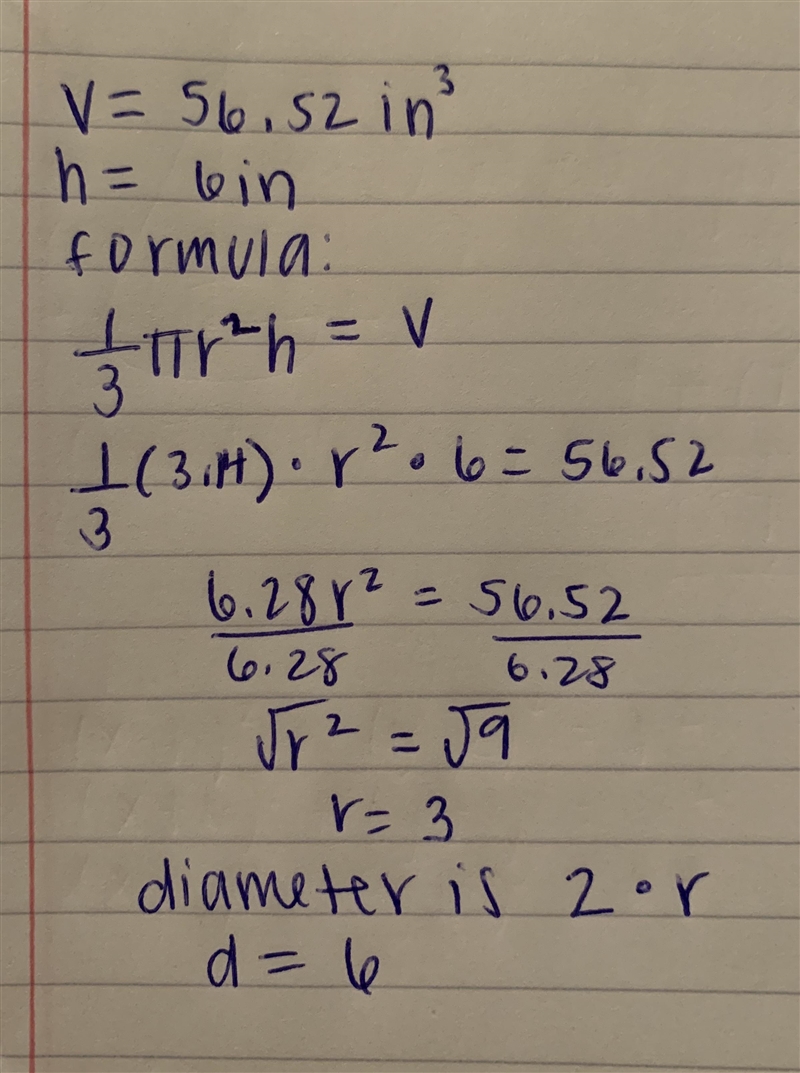 V = 56.52 in³
h = 6in
formula:
1/3 πr²h = V
1/3 (3.14) · r² · 6 = 56.52
6.28r²/6.28 = 56.52/6.28
√r² = √9
r = 3
diameter is 2 · r
d = 6